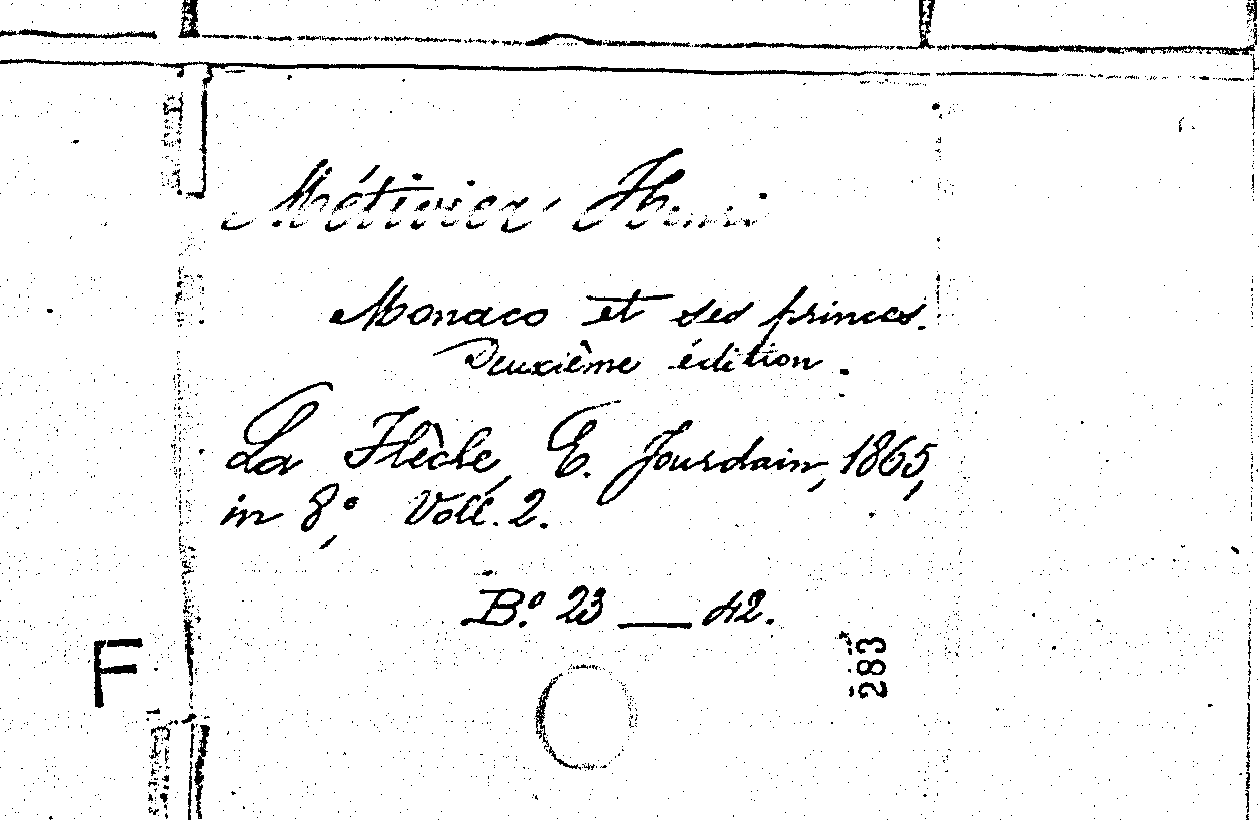 Métivier Henri
Monaco et ses princes.
Deuxième édition.
La Flèche, E. Jourdain, 1865,
in 8°, Voll. 2.
B.º 23 — 42.
F
283